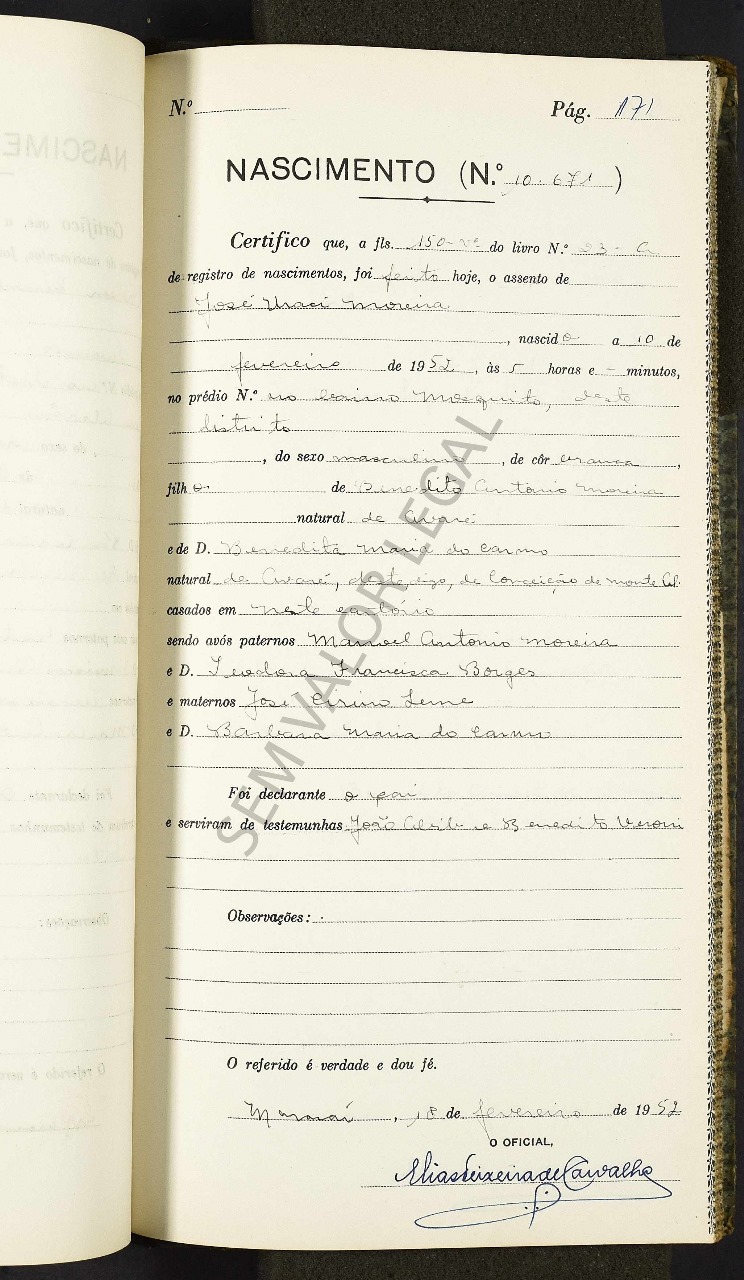 N.º
Pág. 171
NASCIMENTO (N.º 10.671)
Certifico que, a fls. 150-vº do livro N.º 23-A
de registro de nascimentos, foi feito hoje, o assento de
José Moreira
, nascido a 10 de
fevereiro de 1952, às 5 horas e - minutos,
no prédio N.º no bairro Mosquito, deste
distrito
, do sexo masculino, de côr branca,
filho de Benedito Antonio Moreira
natural de Avaré
e de D. Benedita Maria do Carmo
natural de Avaré, deste, digo, de Conceição de Monte
casados em neste cartorio
sendo avós paternos Manoel Antonio Moreira
e D. Teodora Francisca Borges
e maternos José Cirino Leme
e D. Barbara Maria do Carmo
Foi declarante o pai
e serviram de testemunhas João e Benedito
Observações:
O referido é verdade e dou fé.
Maracaí, 18 de fevereiro de 1952
O OFICIAL,
Elias Teixeira de Carvalho
SEM VALOR LEGAL